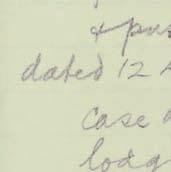 & pu
dated 12
case
lodg